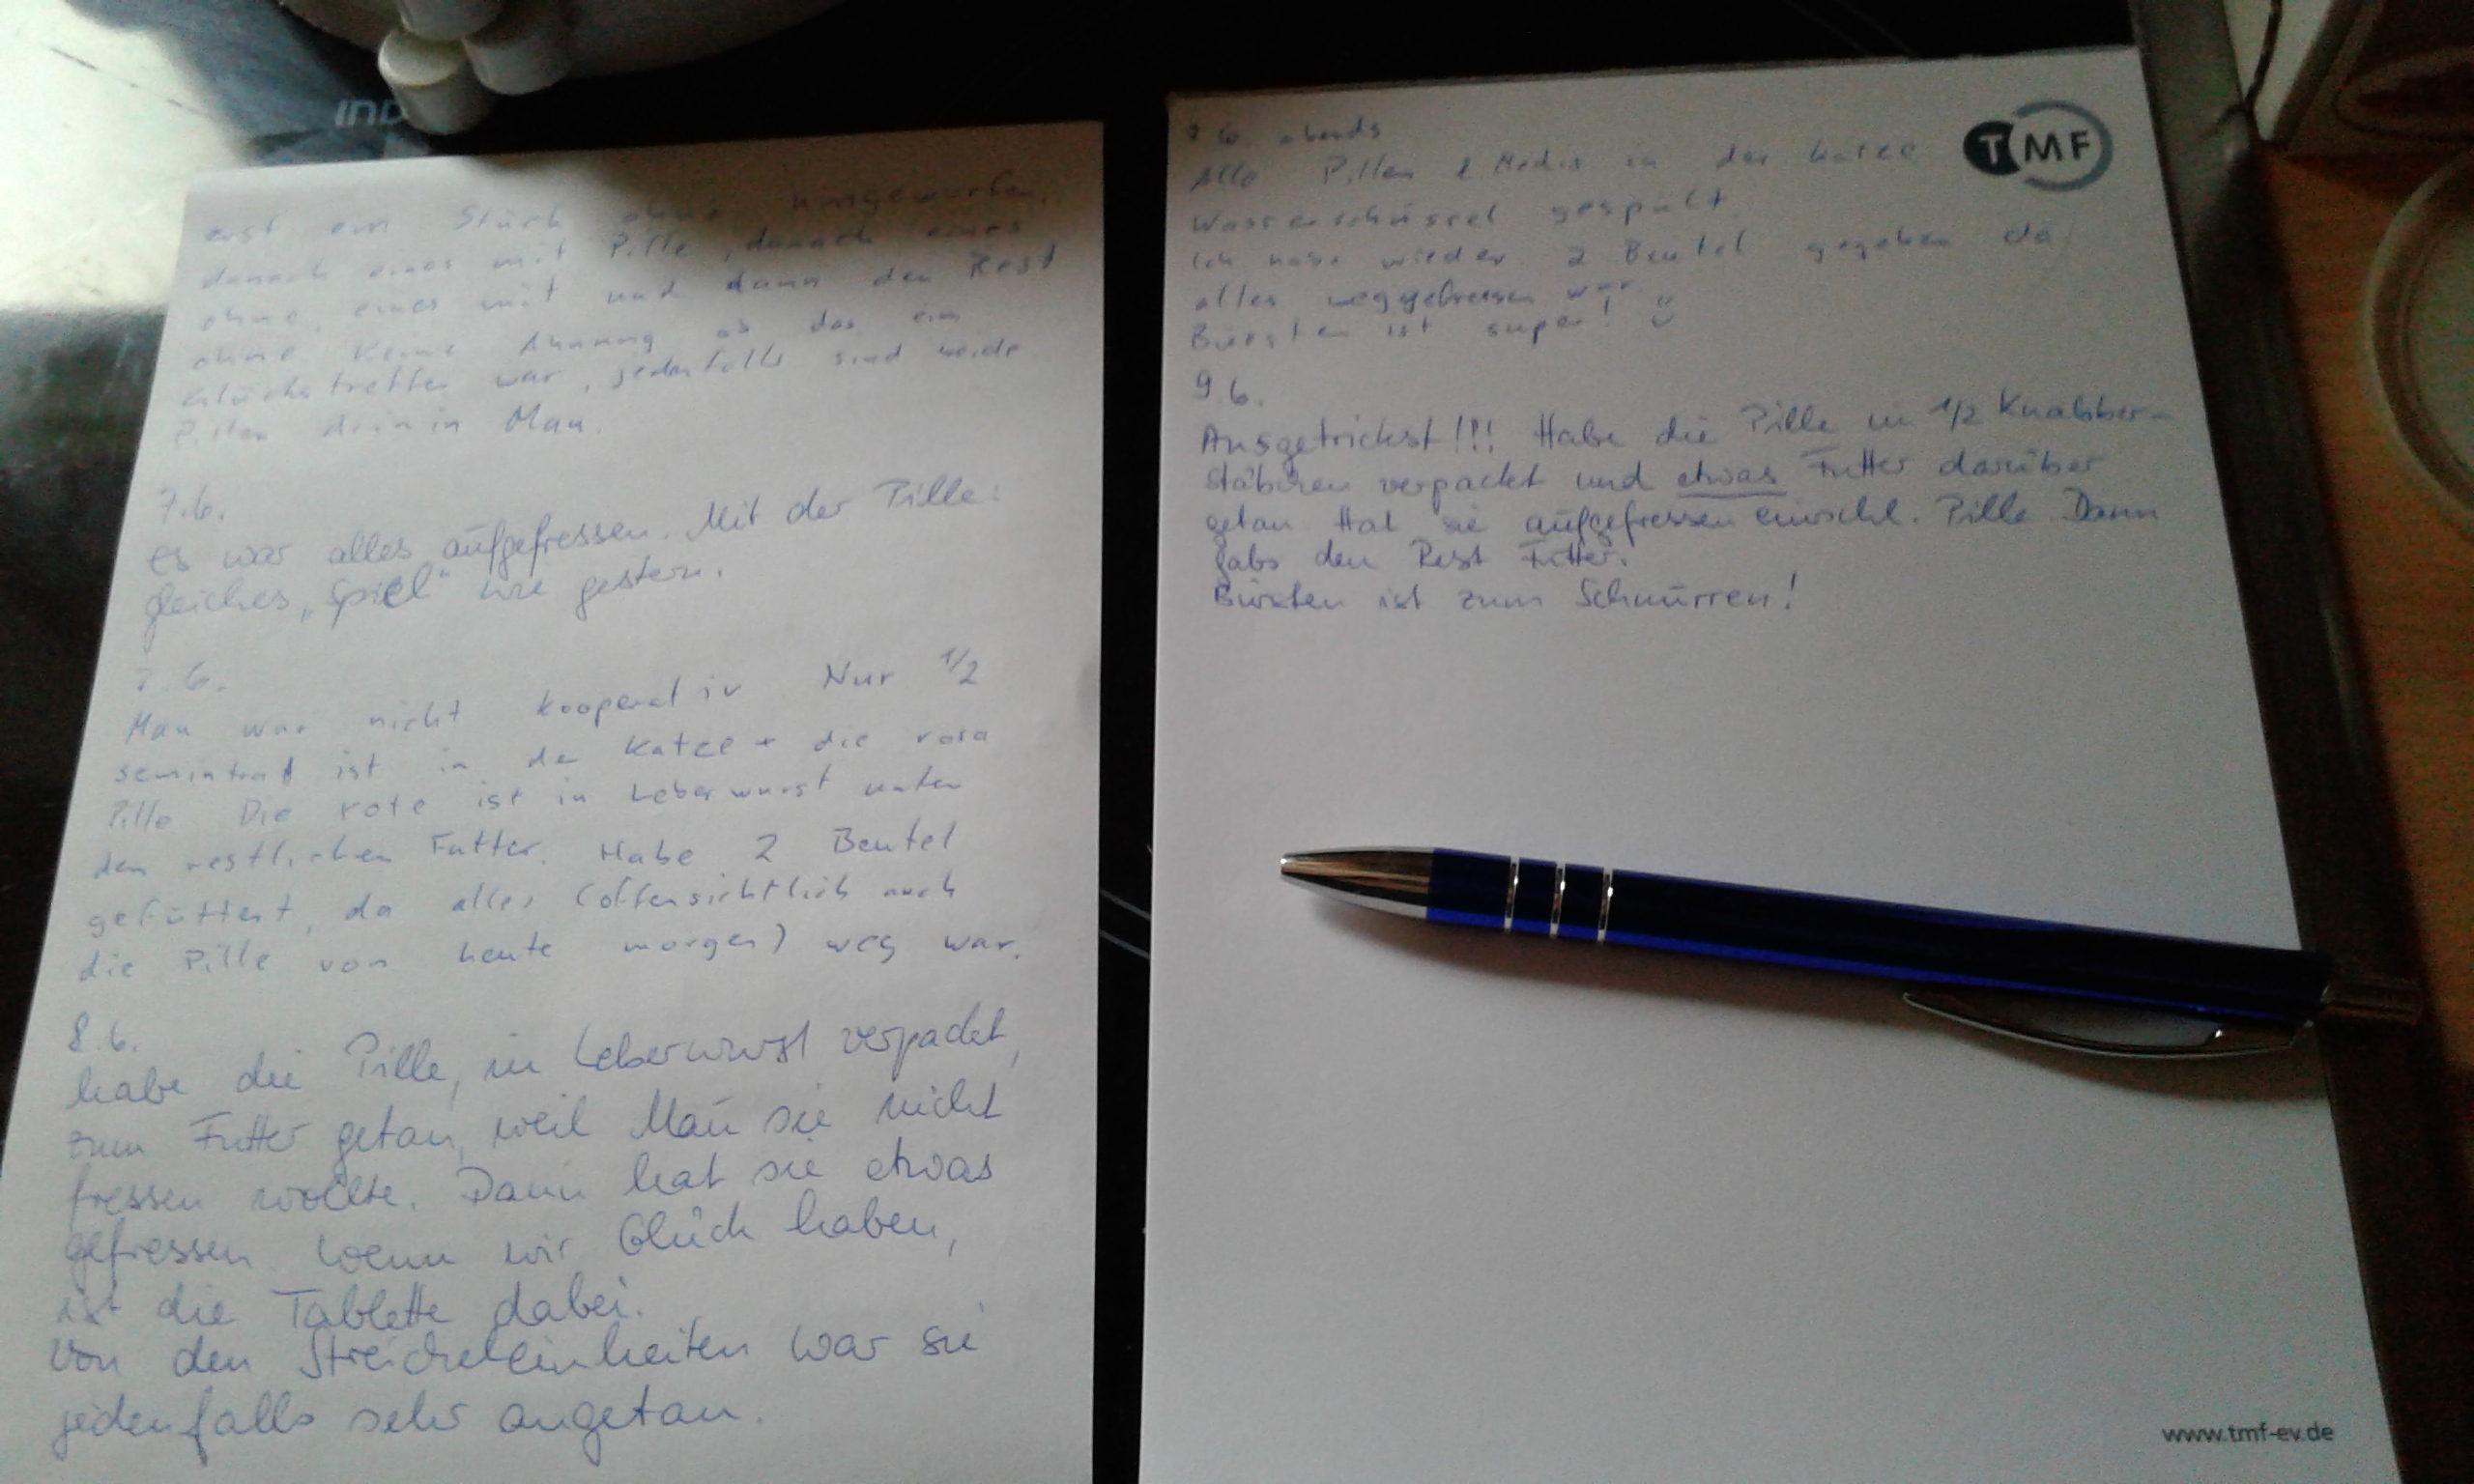 IND
erst ein Stück ohne hingeworfen,
danach eines mit Pille, danach eines
ohne, eines mit und dann den Rest
ohne. Keine Ahnung ob das ein
Glückstreffer war, jedenfalls sind beide
Pillen drin in Mau.
7.6.
Es war alles aufgefressen. Mit der Pille:
gleiches „Spiel“ wie gestern.
7.6.
Mau war nicht kooperativ. Nur 1/2
semintra ist in der Katze + die rosa
Pille. Die rote ist in Leberwurst unter
dem restlichen Futter. Habe 2 Beutel
gefüttert, da alles (offensichtlich auch
die Pille von heute morgen) weg war.
8.6.
habe die Pille, in Leberwurst verpackt,
zum Futter getan, weil Mau sie nicht
fressen wollte. Dann hat sie etwas
gefressen. Wenn wir Glück haben,
ist die Tablette dabei.
Von den Streicheleinheiten war sie
jedenfalls sehr angetan.
TMF
8.6. abends
Alle Pillen & Medis in der Katze
Wasserschüssel gespült.
Ich habe wieder 2 Beutel gegeben da
alles weggefressen war
Bürsten ist super! ☺
9.6.
Ausgetrickst!!! Habe die Pille in 1/2 Knabber-
stäbchen verpackt und etwas Futter darüber
getan. Hat sie aufgefressen einschl. Pille. Dann
gabs den Rest Futter.
Bürsten ist zum Schnurren!
www.tmf-ev.de